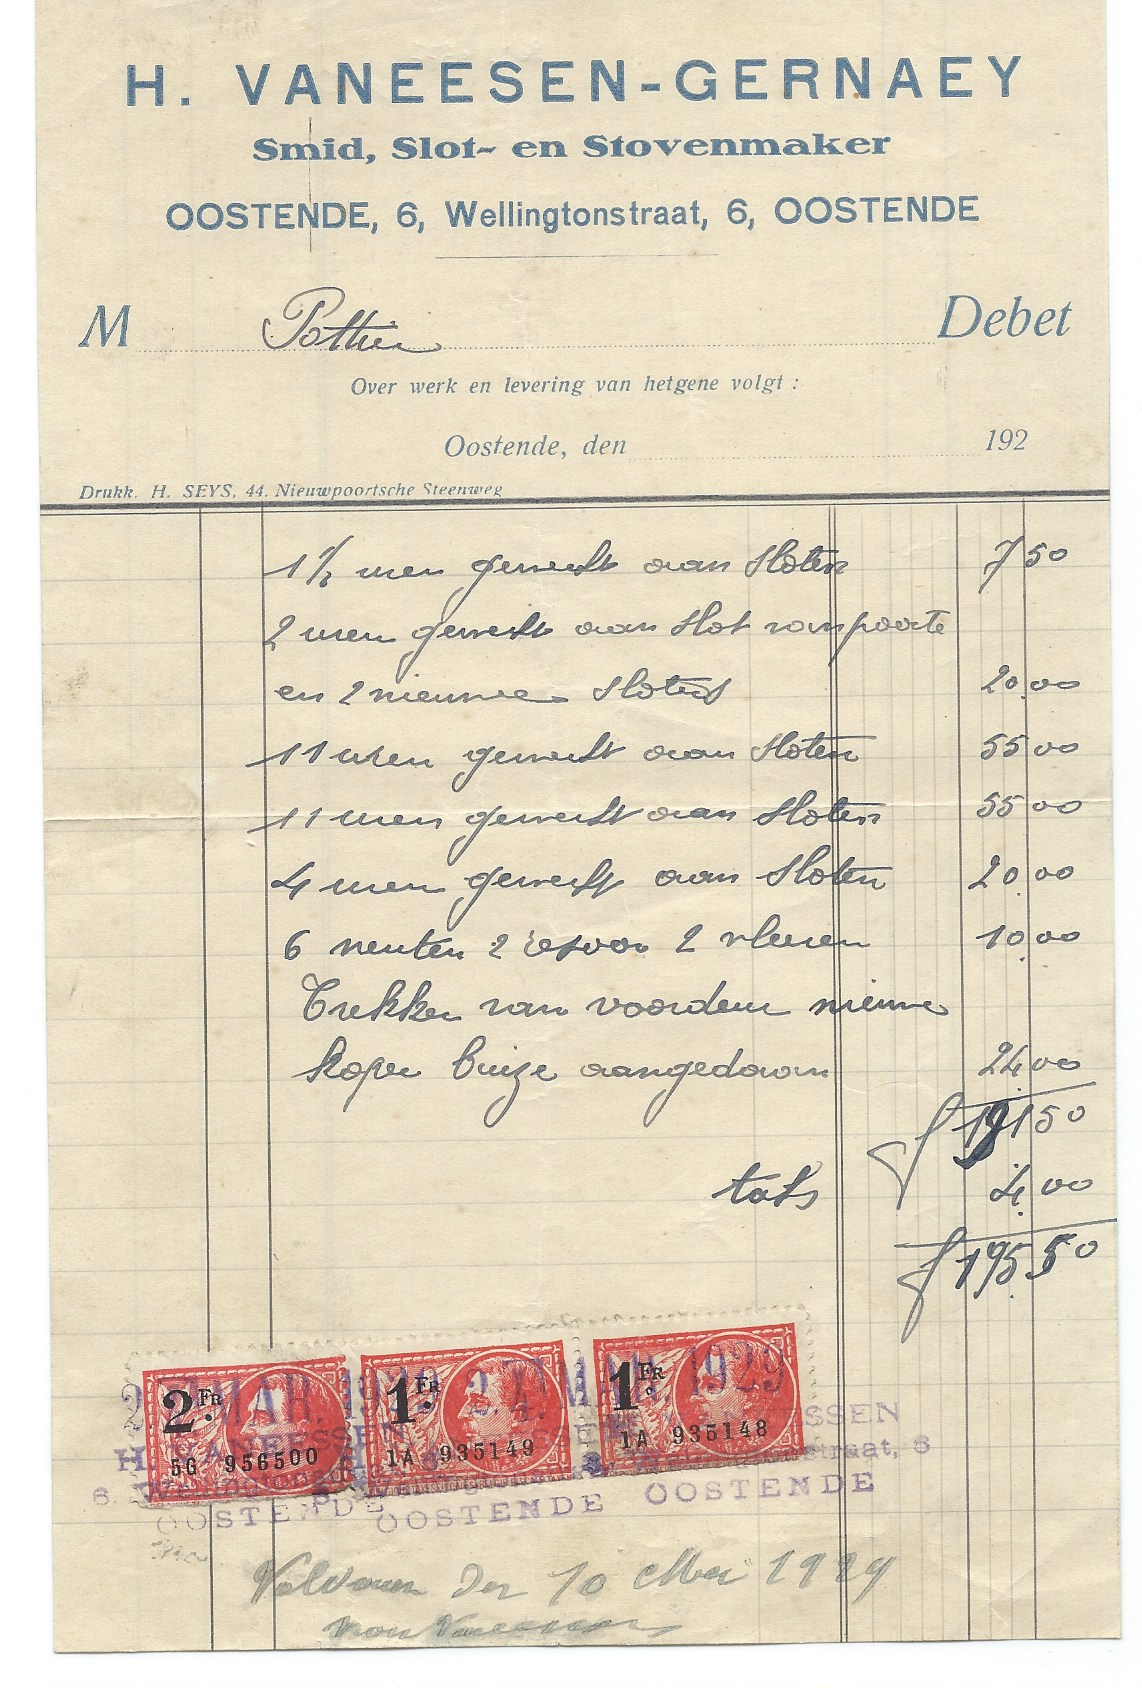 H. VANEESEN-GERNAEY
Smid, Slot- en Stovenmaker
OOSTENDE, 6, Wellingtonstraat, 6, OOSTENDE
M Pottier Debet
Over werk en levering van hetgene volgt :
Oostende, den 192
Drukk. H. SEYS, 44. Nieuwpoortsche Steenweg
1 1/2 uren gewerkt aan Sloten 7 50
2 uren gewerkt aan Slot van poorte
en 2 nieuwe Sloters 20.00
11 uren gewerkt aan Sloten 55 00
11 uren gewerkt aan Sloten 55 00
4 uren gewerkt aan Sloten 20.00
6 2 2 10.00
Trekker van voordeur nieuwe
koper buize aangedaan 24.00
f 191 50
taks 4.00
f 195 50
2 FR. 1 FR. 1 FR.
5G 956500 1A 935149 1A 935148
MAR. 1929 MAR. 1929
OOSTENDE OOSTENDE OOSTENDE
Voldaan den 10 Mei 1929